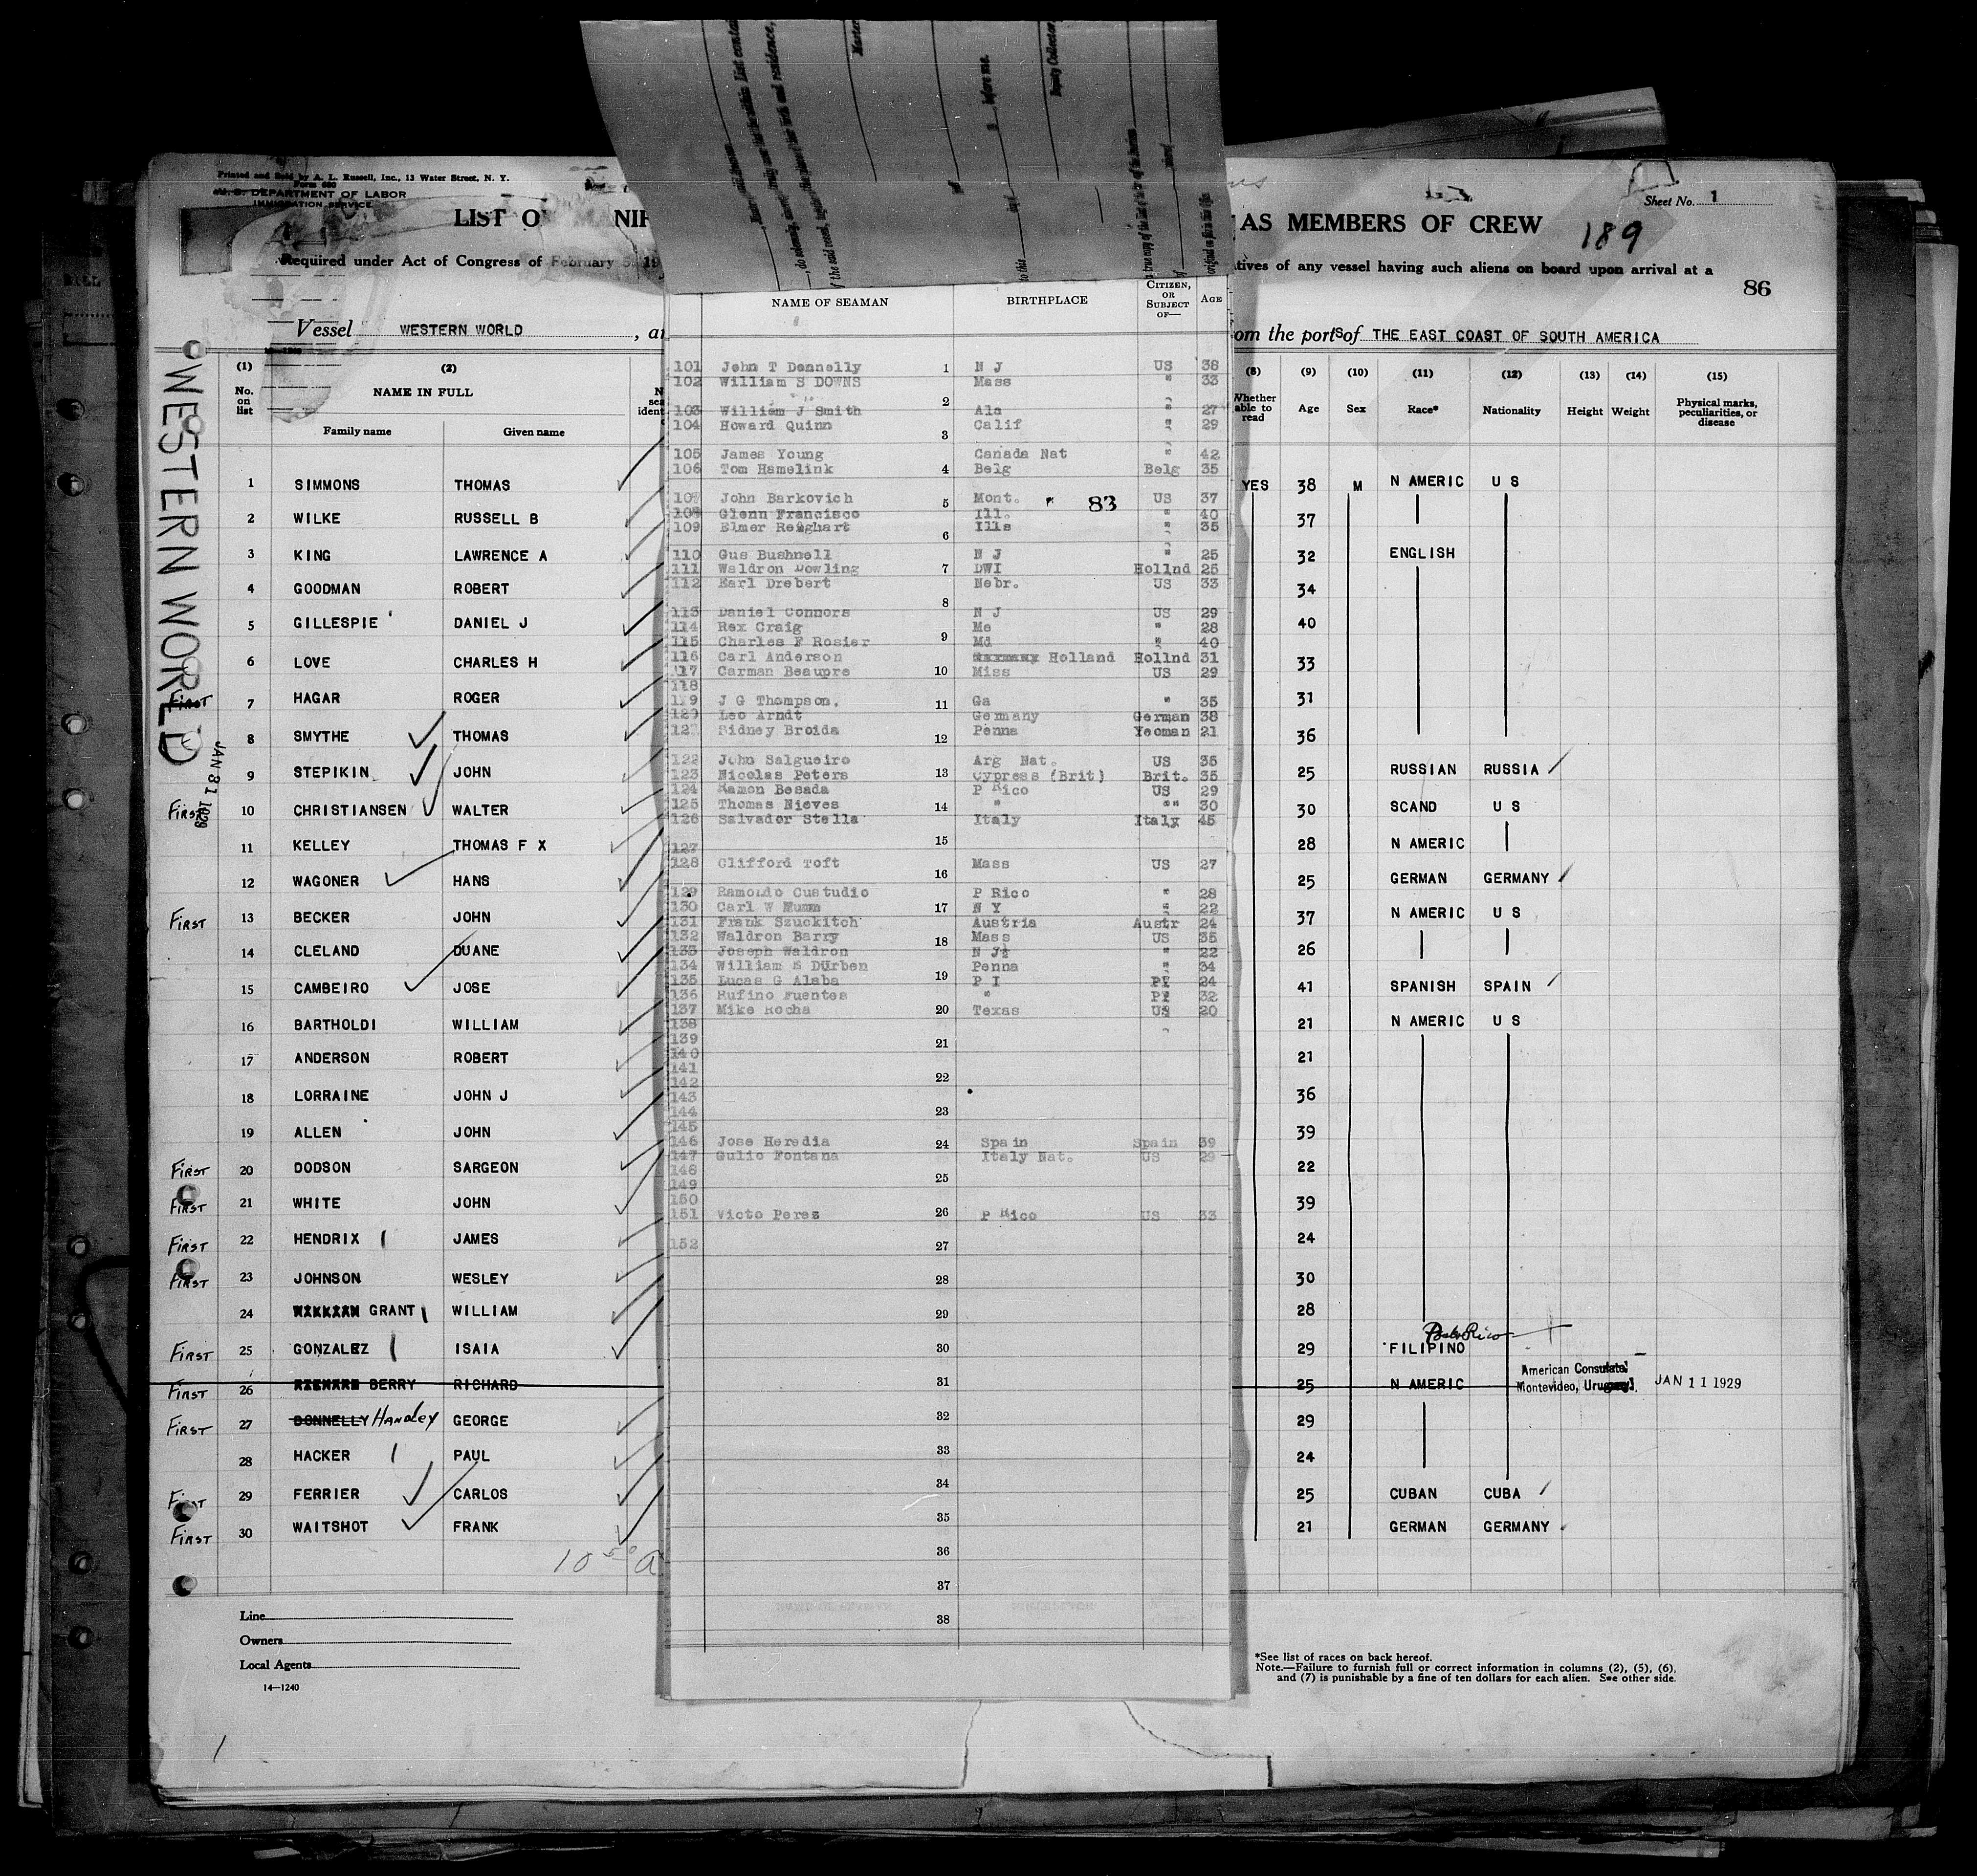 Printed and Sold by A. L. Russell, Inc., 13 Water Street, N. Y.
Form 680
U. S. DEPARTMENT OF LABOR
IMMIGRATION SERVICE
Sheet No. 1
LIST O
AS MEMBERS OF CREW
189
Required under Act of Congress of February 5, 19
tives of any vessel having such aliens on board upon arrival at a
86
Vessel WESTERN WORLD
om the ports of THE EAST COAST OF SOUTH AMERICA
WESTERN WORLD
JAN 31 1929
(1) (2)
No. on list
NAME IN FULL
Family name Given name
(8) (9) (10) (11) (12) (13) (14) (15)
Whether able to read
Age Sex Race* Nationality Height Weight
Physical marks, peculiarities, or disease
1 SIMMONS THOMAS YES 38 M N AMERIC U S
2 WILKE RUSSELL B 37
3 KING LAWRENCE A 32 ENGLISH
4 GOODMAN ROBERT 34
5 GILLESPIE DANIEL J 40
6 LOVE CHARLES H 33
First 7 HAGAR ROGER 31
8 SMYTHE THOMAS 36
9 STEPIKIN JOHN 25 RUSSIAN RUSSIA
First 10 CHRISTIANSEN WALTER 30 SCAND U S
11 KELLEY THOMAS F X 28 N AMERIC
12 WAGONER HANS 25 GERMAN GERMANY
First 13 BECKER JOHN 37 N AMERIC U S
14 CLELAND DUANE 26
15 CAMBEIRO JOSE 41 SPANISH SPAIN
16 BARTHOLDI WILLIAM 21 N AMERIC U S
17 ANDERSON ROBERT 21
18 LORRAINE JOHN J 36
19 ALLEN JOHN 39
First 20 DODSON SARGEON 22
First 21 WHITE JOHN 39
First 22 HENDRIX JAMES 24
First 23 JOHNSON WESLEY 30
24 GRANT WILLIAM 28
Porto Rico
First 25 GONZALEZ ISAIA 29 FILIPINO
First 26 BERRY RICHARD 25 N AMERIC
American Consulate
Montevideo, Uruguay. JAN 11 1929
First 27 DONNELLY Handley GEORGE 29
28 HACKER PAUL 24
First 29 FERRIER CARLOS 25 CUBAN CUBA
First 30 WAITSHOT FRANK 21 GERMAN GERMANY
Line
Owners
Local Agents
14—1240
*See list of races on back hereof.
Note.—Failure to furnish full or correct information in columns (2), (5), (6),
and (7) is punishable by a fine of ten dollars for each alien. See other side.
before me.
Deputy Collector
NAME OF SEAMAN BIRTHPLACE CITIZEN, OR SUBJECT OF— AGE
101 John T Donnelly 1 N J US 38
102 William S DOWNS Mass " 33
2
103 William J Smith Ala " 27
104 Howard Quinn 3 Calif " 29
105 James Young Canada Nat " 42
106 Tom Hamelink 4 Belg Belg 35
107 John Barkovich 5 Mont. 83 US 37
108 Glenn Francisco Ill. " 40
109 Elmer Reighart 6 Ills " 35
110 Gus Bushnell N J " 25
111 Waldron Dowling 7 DWI Hollnd 25
112 Earl Drebert Nebr. US 33
8
113 Daniel Connors N J US 29
114 Rex Craig Me " 28
115 Charles F Rosier 9 Md " 40
116 Carl Anderson Holland Hollnd 31
117 Carman Beaupre 10 Miss US 29
118
119 J G Thompson. 11 Ga " 35
120 Leo Arndt Germany German 38
121 Sidney Broida 12 Penna Yeoman 21
122 John Salgueiro Arg Nat. US 35
123 Nicolas Peters 13 Cypress (Brit) Brit. 35
124 Ramon Besada P Rico US 29
125 Thomas Nieves 14 " "" 30
126 Salvador Stella Italy Italy 45
127 15
128 Clifford Toft Mass US 27
16
129 Ramoldo Custudio P Rico " 28
130 Carl W Mumm 17 N Y " 22
131 Frank Szuckitch Austria Austr 24
132 Waldron Barry 18 Mass US 35
133 Joseph Waldron N J " 22
134 William S DUrben Penna " 34
135 Lucas G Alaba 19 P I PI 24
136 Rufino Fuentes " PI 32
137 Mike Rocha 20 Texas US 20
138
139 21
140
141
142 22
143
144 23
145
146 Jose Heredia 24 Spain Spain 39
147 Gulio Fontana Italy Nat. US 29
148
149 25
150
151 Victo Perez 26 P Rico US 33
152 27
28
29
30
31
32
33
34
35
36
37
38